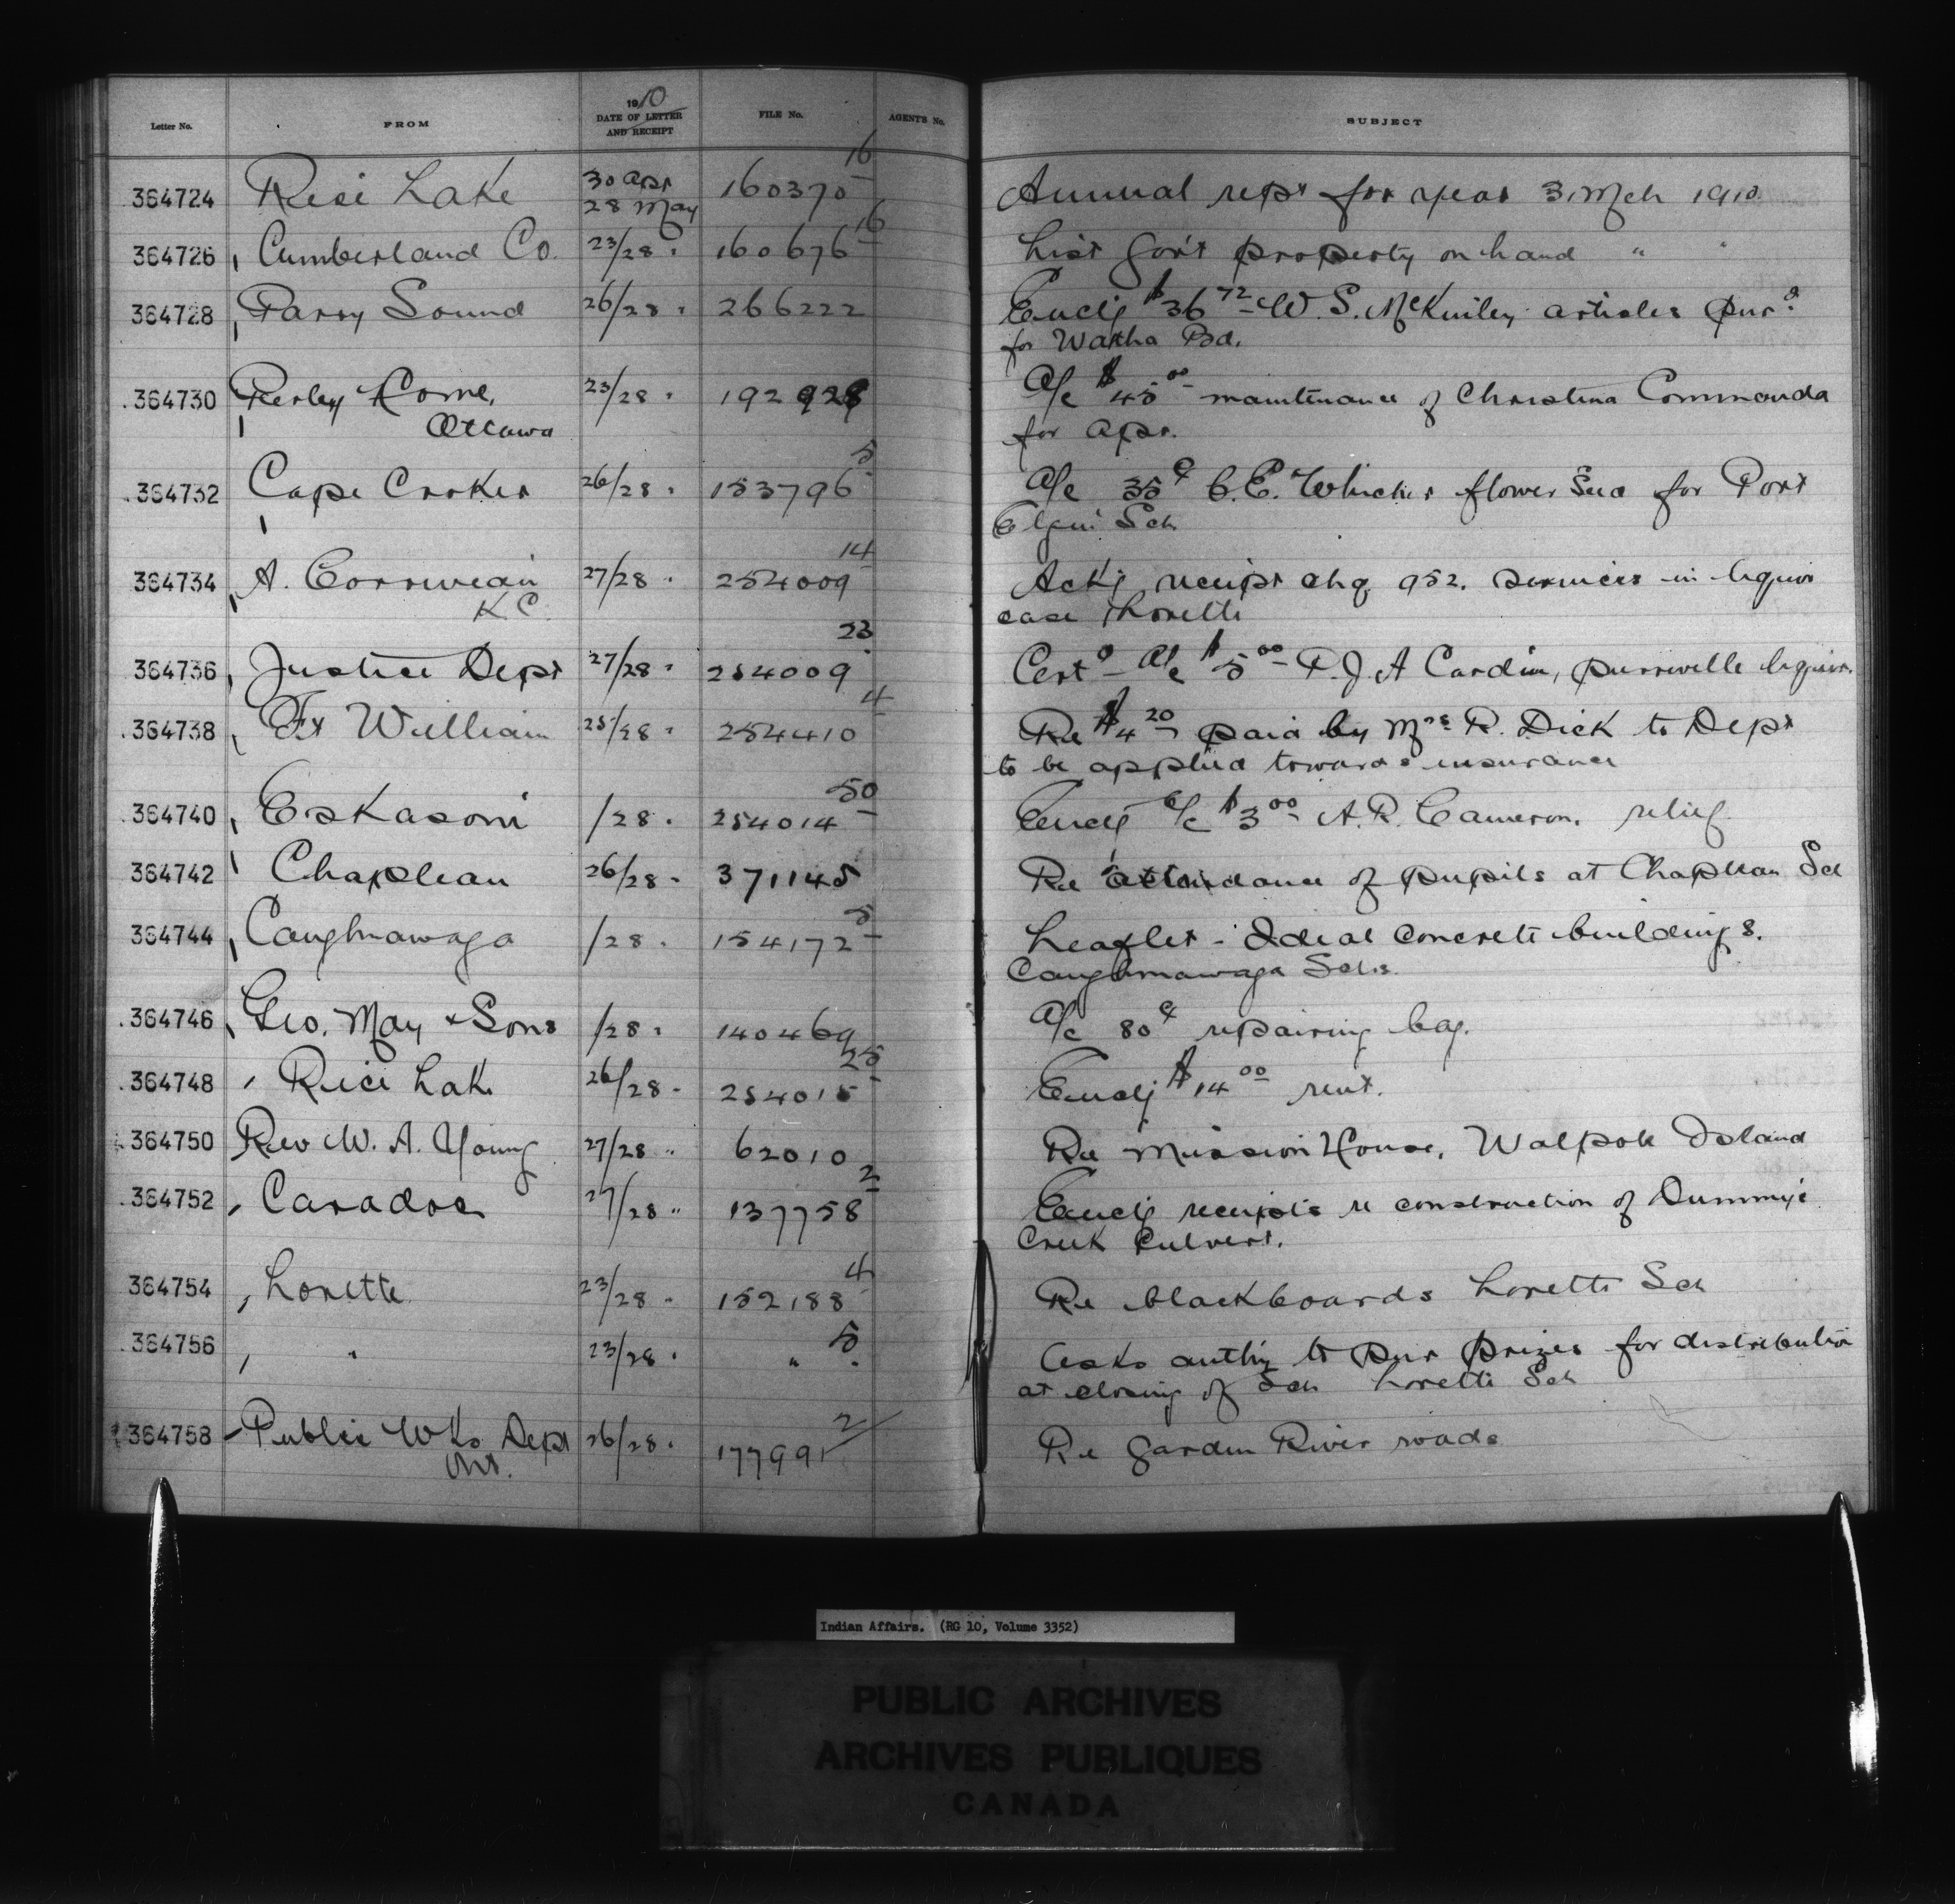 Letter No. FROM 1910 DATE OF LETTER AND RECEIPT FILE No. AGENT'S No. SUBJECT
364724 Rice Lake 30 Apr 28 May 160370 16 Annual rept for year 31 Mch 1910
364726 Cumberland Co. 23/28 " 160676 16 List Gov't property on hand " "
364728 Parry Sound 26/28 " 266222 Enclg $36 72 W. S. McKinley articles pur d
for Watha Bd.
364730 Perley Home, 23/28 " 192928 A/c $45 00 maintenance of Christina Commanda
Ottawa for Apr.
364732 Cape Croker 26/28 " 153796 5 A/c 35 ¢ C. E. Whicher flower seed for Port
Elgin Sch
364734 A. Corriveau 27/28 " 254009 14 Ackg receipt chq 952. services in liquor
K C. case Lorette
364736 Justice Dept 27/28 " 254009 23 Cert d A/c $5 00 P. J. A Cardin, liquor.
364738 Ft William 25/28 " 254410 4 Re $4 20 paid by Mrs R. Dick to Dept
to be applied towards insurance
364740 Eskasoni /28 " 254014 50 Enclg A/c $3 00 A. R. Cameron. relief
364742 Chapleau 26/28 " 371145 Re attendance of pupils at Chapleau Sch
364744 Caughnawaga /28 " 154172 5 Leaflet - Ideal Concrete buildings.
Caughnawaga Schs.
364746 Geo. May & Sons /28 " 140469 A/c 80 ¢ repairing bag.
364748 Rice Lake 26/28 " 254015 25 Enclg $14 00 rent.
364750 Rev W. A. Young 27/28 " 62010 Re Mission House, Walpole Island
364752 Caradoc 27/28 " 137758 2 Enclg receipts re construction of Dummy's
Creek Culvert.
364754 Lorette 23/28 " 152188 4 Re blackboards Lorette Sch
364756 " 23/28 " " 5 Asks authy to pur prizes for distribution
at closing of Sch Lorette Sch
364758 Public Wks Dept 26/28 " 177991 2 Re Garden River roads
Ont.
Indian Affairs. (RG 10, Volume 3352)
PUBLIC ARCHIVES
ARCHIVES PUBLIQUES
CANADA